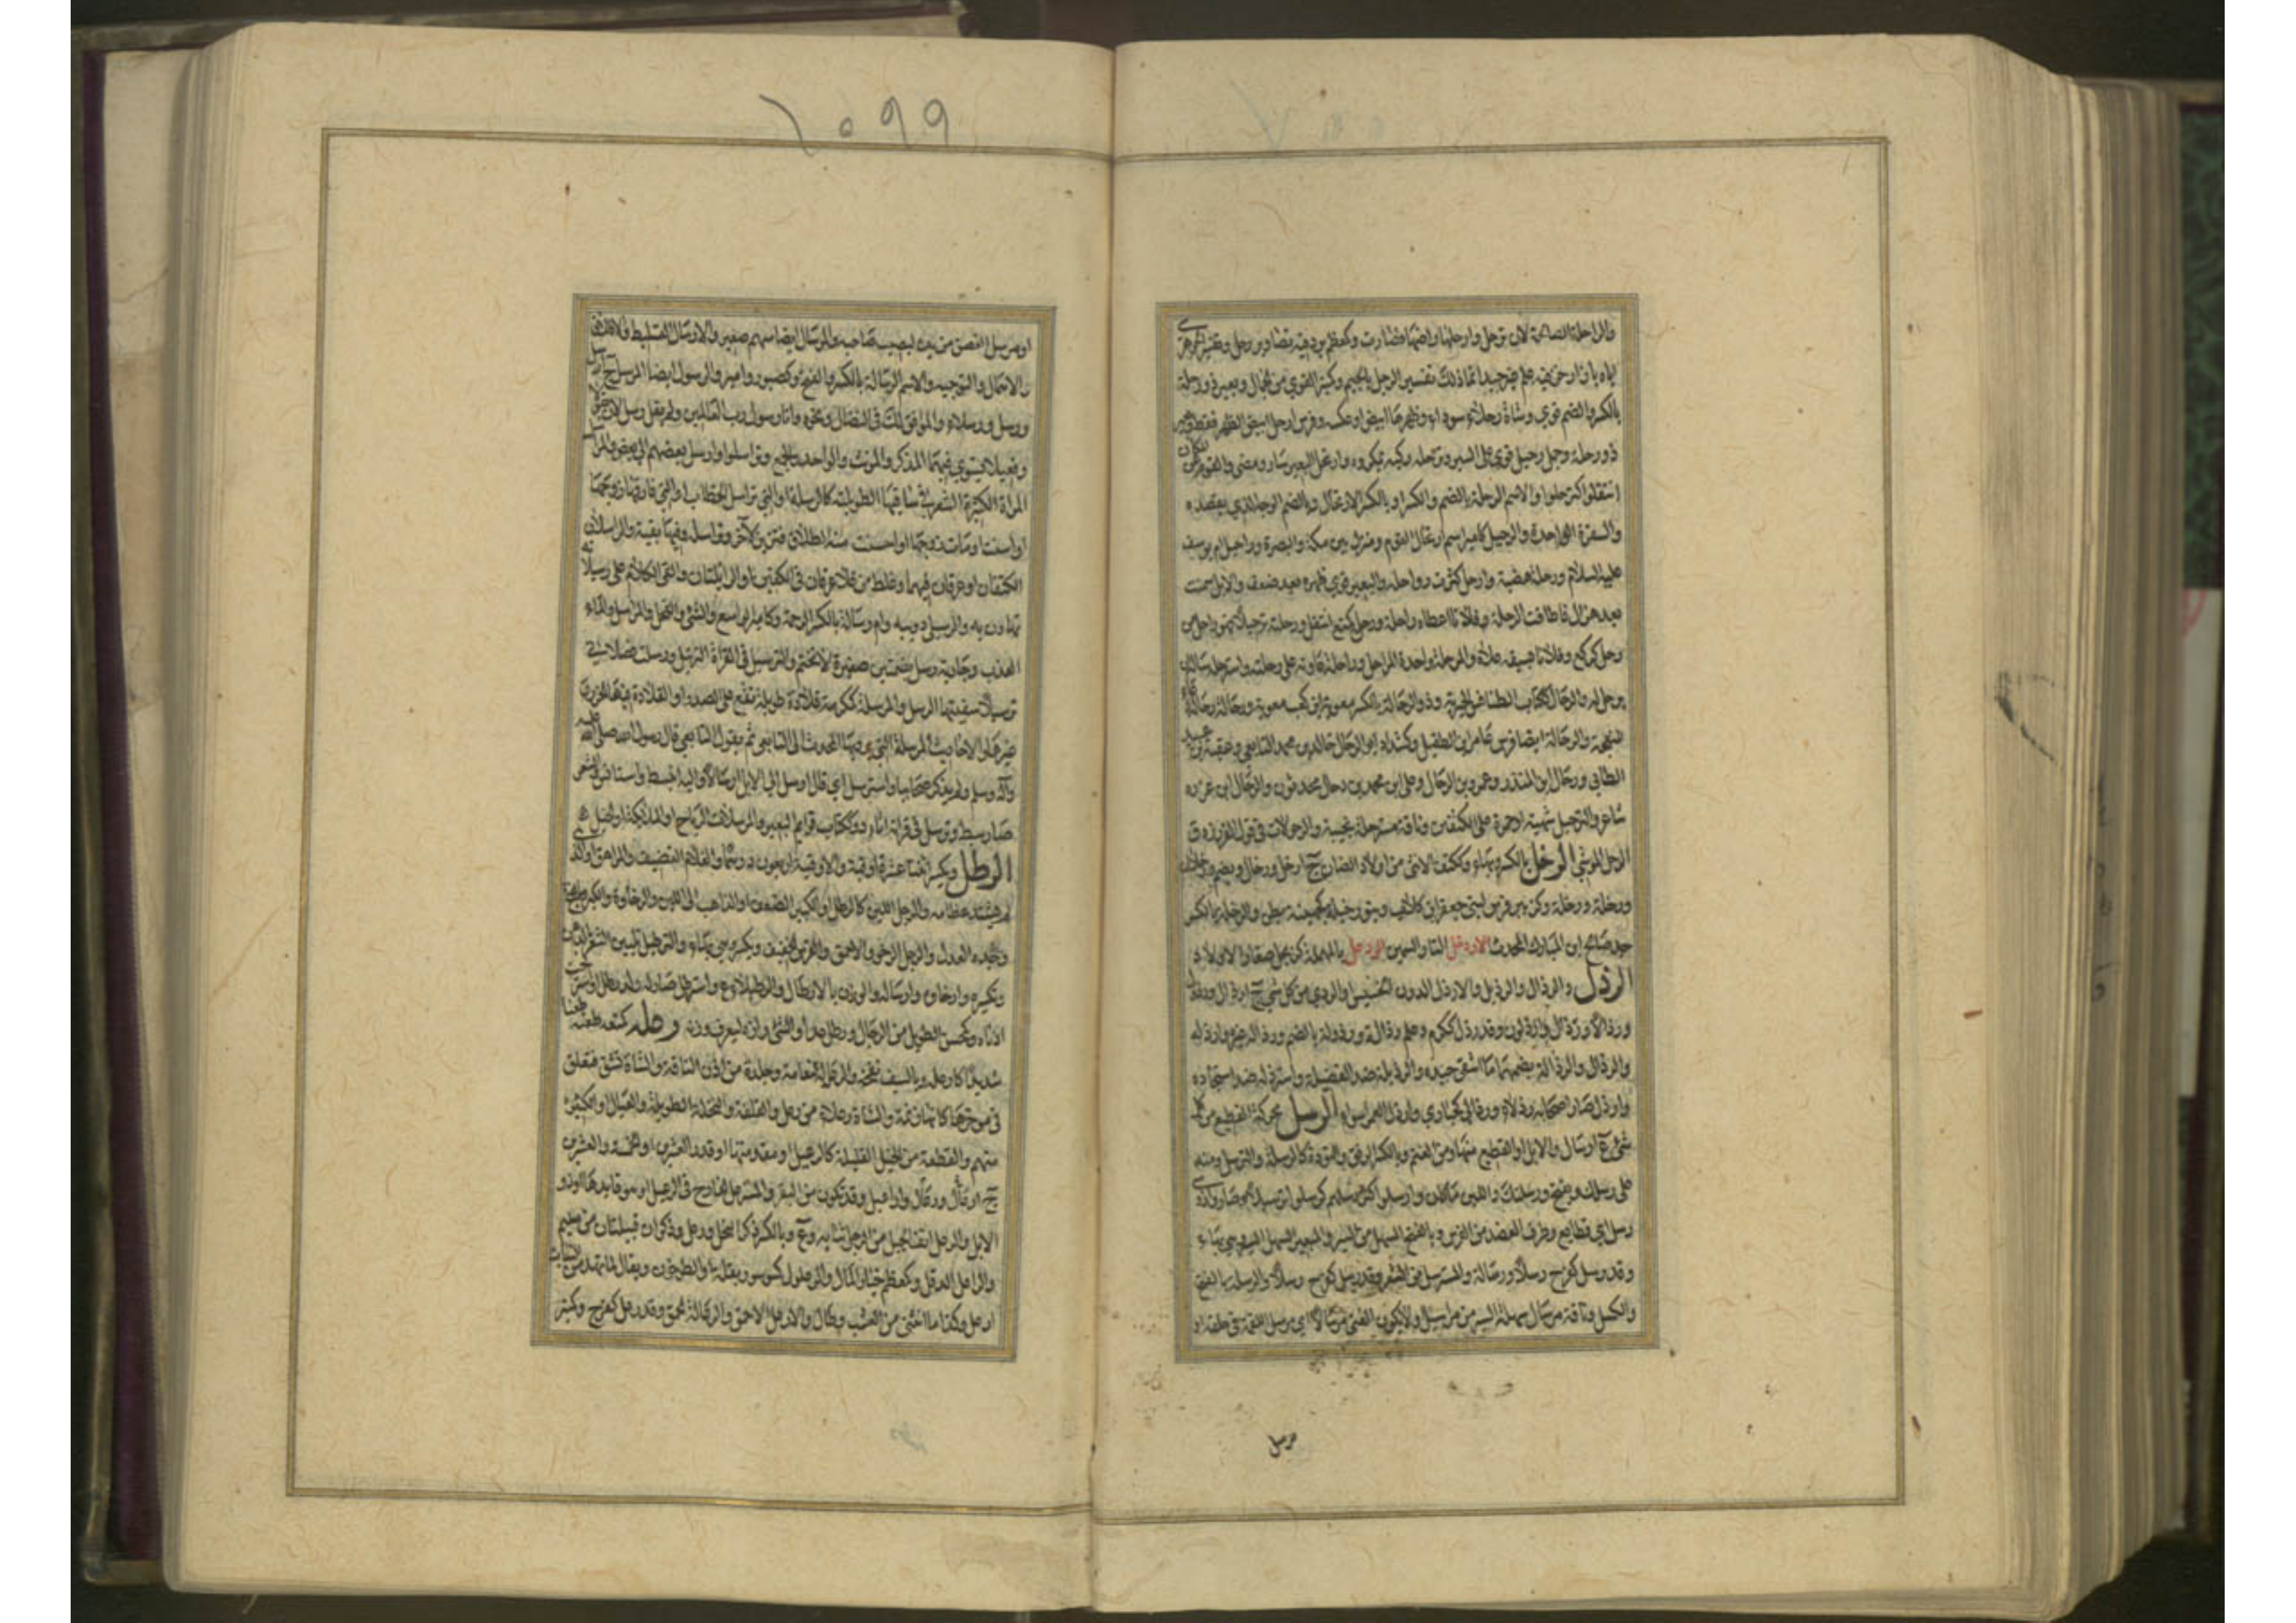 والراحلة الصالحة لان ترحل وارحلها راضها فصارت راحلة وكمعظم برد فيه تصاوير رحل وتفسير الجوهري
اياه بازار خز فيه علم غير جيد انما ذلك تفسير المرجل بالجيم وكبر القوي من الجمال وبعير ذو رحلة
بالكسر والضم قوي وشاة رحلاء سوداء وظهرها ابيض او عكسه وفرس ارحل ابيض الظهر فقط وبعير
ذو رحلة وجمل رحيل قوي على السير وترحله ركبه بمكروه وارتحل البعير سار ومضى والقوم عن المكان
انتقلوا كترحلوا والاسم الرحلة بالضم والكسر او بالكسر الارتحال وبالضم الوجه الذي يقصده
والسفرة الواحدة والرحيل كامير اسم ارتحال القوم ومنزل بين مكة والبصرة وراحيل ام يوسف
عليه السلام ورحلة هضبة وارحل كثرت رواحله والبعير قوي ظهره بعد ضعف والابل سمنت
بعد هزال فاطاقت الرحلة وفلانا اعطاه راحلة ورحل كمنع انتقل ورحلته ترحيلا فهو راحل من
رحل كركع وفلانا بسيفه علاه والمرحلة واحدة المراحل وراحله عاونه على رحلته واسترحله ساله ان
يرحل له والرحال ككتاب الطنافس الحيرية وذو الرحالة بالكسر معوية بن كعب بن معوية ورحالة رحالة دعاء
للنعجة والرحالة ايضا فرس عامر بن الطفيل وكشداد ابو الرحال خالد بن محمد التابعي وعقبة بن عبيد
الطائي ورحال ابن المنذر وعمرو بن الرحال وعلي ابن محمد بن رحال محدثون والرحال ابن عزرة
شاعر والترحيل شهبة او حمرة على الكتفين وناقة مسترحلة نجيبة والرحولات في قول الفرزدق
الرحل الموشي الرخل بالكسر وبهاء وككتف الانثى من اولاد الضان ج ارخل ورخال ويضم ورخلان
ورخلة ورخلة وكزبير فرس لبني جعفر ابن كلاب وبنو رخيلة كجهينة بطن والرخلة بالكسر
جد صالح ابن المبارك المحدث الاردخل التار السمين الردعل بالمهملة كزبرجل صغار الاولاد
الرذل والرذال والرذيل والارذل الدون الخسيس او الردي من كل شيء ج ارذال ورذول
ورذلاء ورذال وارذلون وقد رذل ككرم وعلم رذالة ورذولة بالضم ورذله غيره وارذله
والرذال والرذالة بضمهما ما انتقي جيده والرذيلة ضد الفضيلة واسترذله ضد استجاده
وارذل صار اصحابه رذلاء ورذالى كحبارى وارذل العمر اسوأه الرسل محركة القطيع من كل
شيء ج ارسال والابل او القطيع منها ومن الغنم وبالكسر الرفق والتؤدة كالرسلة والترسل ومنه
على رسلك ويفتح ورسلتك واللبن ما كان وارسلوا كثر رسلهم كرسلوا ترسيلا وصاروا ذوي
رسل اي قطايع وطرف العضد من الفرس وبالفتح السهل من السير والبعير السهل السير وهي بهاء
وقد رسل كفرح رسلا ورسالة والمسترسل من الشعر وقد رسل كفرح رسلا والرسلة بالفتح
والكسل وناقة مرسال سهلة السير من مراسيل ولا يكون الفتى مرسالا اي مرسل اللقمة في حلقه او
مرسل
١٠٩٩
او مرسل الغصن من يده ليصيب صاحبه والمرسال ايضا سهم صغير والارسال التسليط والاطلاق
والاهمال والتوجيه والاسم الرسالة بالكسر والفتح وكصبور وامير والرسول ايضا المرسل ج ارسل
ورسل ورسلاء والموافق لك في النضال ونحوه وانا رسول رب العالمين ولم يقل رسل لان فعولا
وفعيلا يستوي فيهما المذكر والمونث والواحد والجمع وتراسلوا ارسل بعضهم الى بعض والمراسل
المراة الكثيرة الشعر في ساقيها الطويلته كالرسلة او التي تراسل الخطاب او التي فارقها زوجها
او اسنت او مات زوجها او احست منه الطلاق فتزين لآخر وتراسله وفيها بقية والراسلان
الكتفان او عرقان فيهما وغلط من قال عرقان في الكفين او الرابلتان والقى الكلام على رسيلاته
تهاون به والرسيلى دويبه وام رسالة بالكسر الرخمة وكامير الواسع والشيء والفحل والمراسل والماء
العذب وجارية رسل بضمتين صغيرة لا تختمر والترسيل في القراة الترتيل ورسلت فصلاني
ترسيلا سقيتها الرسل والمرسلة كمكرمة قلادة طويلة تقع على الصدر او القلادة فيها الخرز و
غيرها والاحاديث المرسلة التي يرويها المحدث الى التابعي ثم يقول التابعي قال رسول الله صلى الله عليه
وآله وسلم ولم يذكر صحابيا واسترسل اي قال ارسل الي الابل ارسالا واليه انبسط واستانس والشعر
صار سبطا وترسل في قراءته اتاد وككتاب قوايم البعير والمرسلات الرياح او الملائكة او الخيل
الرطل ويكسر اثنتا عشرة اوقية والاوقية اربعون درهما والغلام القضيف والمراهق والذي
لم يشتد عظامه والرجل اللين كالرطل او الكبير الضعيف او الذاهب الى اللين والرخاوة والكبر
وبخده العدل والرجل الرخو والاحمق والفرس الخفيف ويكسر وهي بهاء والترطيل تليين الشعر بالدهن
وتكسيره وارخاؤه وارساله والوزن بالارطال والرطيلاء ع وارطل صار له ولد رطل او استرخت
اذناه وكمحسن الطويل من الرجال ورطل عدا والشيء رازه ليعرف وزنه رعله كمنعه طعنه طعنا
شديدا كارعله وبالسيف نفحه والرعلة النعامة وجلدة من اذن الناقة والشاة تشق فتعلق
في موخرها كانها زنمة والشاة رعلاء من رعل والقلفة والنخلة الطويلة والعيال او الكثير
منهم والقطعة من الخيل القليلة كالرعيل او مقدمتها او قدر العشرين او الخمسة والعشرين
ج رعال وارعال واراعيل وقد تكون من البقر والمسترعل الخارج في الرعيل او هو قايدها او ذو
الابل والرعل انف الجبل من الرجل ثيابه وع وبالكسر ذكر النحل ورعل وذكوان قبيلتان من سليم
والراعل الدقل وكمعظم خيار المال والرعلول كسرسور بقلة او الطرخون ويقال لما تهدل من النبات
ارعل وكذا ما انثنى من العشب وطال والارعل الاحمق والرعالة الحمق وقد رعل كفرح وكبر